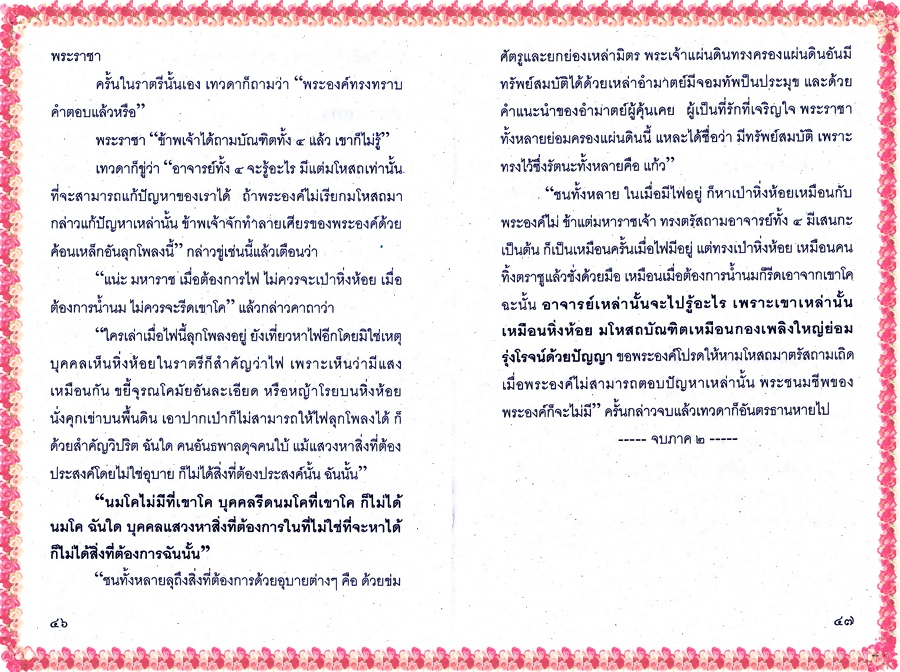 พระราชา
ครั้นในราตรีนั้นเอง เทวดาก็ถามว่า “พระองค์ทรงทราบ
คำตอบแล้วหรือ”
พระราชา “ข้าพเจ้าได้ถามบัณฑิตทั้ง ๔ แล้ว เขาก็ไม่รู้”
เทวดาก็ขู่ว่า “อาจารย์ทั้ง ๔ จะรู้อะไร มีแต่มโหสถเท่านั้น
ที่จะสามารถแก้ปัญหาของเราได้ ถ้าพระองค์ไม่เรียกมโหสถมา
กล่าวแก้ปัญหาเหล่านั้น ข้าพเจ้าจักทำลายเศียรของพระองค์ด้วย
ค้อนเหล็กอันลุกโพลงนี้” กล่าวขู่เช่นนี้แล้วเตือนว่า
“แน่ะ มหาราช เมื่อต้องการไฟ ไม่ควรจะเป่าหิ่งห้อย เมื่อ
ต้องการน้ำนม ไม่ควรจะรีดเขาโค” แล้วกล่าวคาถาว่า
“ใครเล่าเมื่อไฟนี้ลุกโพลงอยู่ ยังเที่ยวหาไฟอีกโดยมิใช่เหตุ
บุคคลเห็นหิ่งห้อยในราตรีก็สำคัญว่าไฟ เพราะเห็นว่ามีแสง
เหมือนกัน ขยี้จุรณโคมัยอันละเอียด หรือหญ้าโรยบนหิ่งห้อย
นั่งคุกเข่าบนพื้นดิน เอาปากเป่าก็ไม่สามารถให้ไฟลุกโพลงได้ ก็
ด้วยสำคัญวิปริต ฉันใด คนอันธพาลดุจคนใบ้ แม้แสวงหาสิ่งที่ต้อง
ประสงค์โดยไม่ใช่อุบาย ก็ไม่ได้สิ่งที่ต้องประสงค์นั้น ฉันนั้น”
“นมโคไม่มีที่เขาโค บุคคลรีดนมโคที่เขาโค ก็ไม่ได้
นมโค ฉันใด บุคคลแสวงหาสิ่งที่ต้องการในที่ไม่ใช่ที่จะหาได้
ก็ไม่ได้สิ่งที่ต้องการฉันนั้น”
“ชนทั้งหลายลุถึงสิ่งที่ต้องการด้วยอุบายต่างๆ คือ ด้วยข่ม
๔๖
ศัตรูและยกย่องเหล่ามิตร พระเจ้าแผ่นดินทรงครองแผ่นดินอันมี
ทรัพย์สมบัติได้ด้วยเหล่าอำมาตย์มีจอมทัพเป็นประมุข และด้วย
คำแนะนำของอำมาตย์ผู้คุ้นเคย ผู้เป็นที่รักที่เจริญใจ พระราชา
ทั้งหลายย่อมครองแผ่นดินนี้ แหละได้ชื่อว่า มีทรัพย์สมบัติ เพราะ
ทรงไว้ซึ่งรัตนะทั้งหลายคือ แก้ว”
“ชนทั้งหลาย ในเมื่อมีไฟอยู่ ก็หาเป่าหิ่งห้อยเหมือนกับ
พระองค์ไม่ ข้าแต่มหาราชเจ้า ทรงตรัสถามอาจารย์ทั้ง ๔ มีเสนกะ
เป็นต้น ก็เป็นเหมือนครั้นเมื่อไฟมีอยู่ แต่ทรงเป่าหิ่งห้อย เหมือนคน
ทิ้งตราชูแล้วชั่งด้วยมือ เหมือนเมื่อต้องการน้ำนมก็รีดเอาจากเขาโค
ฉะนั้น อาจารย์เหล่านั้นจะไปรู้อะไร เพราะเขาเหล่านั้น
เหมือนหิ่งห้อย มโหสถบัณฑิตเหมือนกองเพลิงใหญ่ย่อม
รุ่งโรจน์ด้วยปัญญา ขอพระองค์โปรดให้หามโหสถมาตรัสถามเถิด
เมื่อพระองค์ไม่สามารถตอบปัญหาเหล่านั้น พระชนมชีพของ
พระองค์ก็จะไม่มี” ครั้นกล่าวจบแล้วเทวดาก็อันตรธานหายไป
----- จบภาค ๒ -----
๔๗